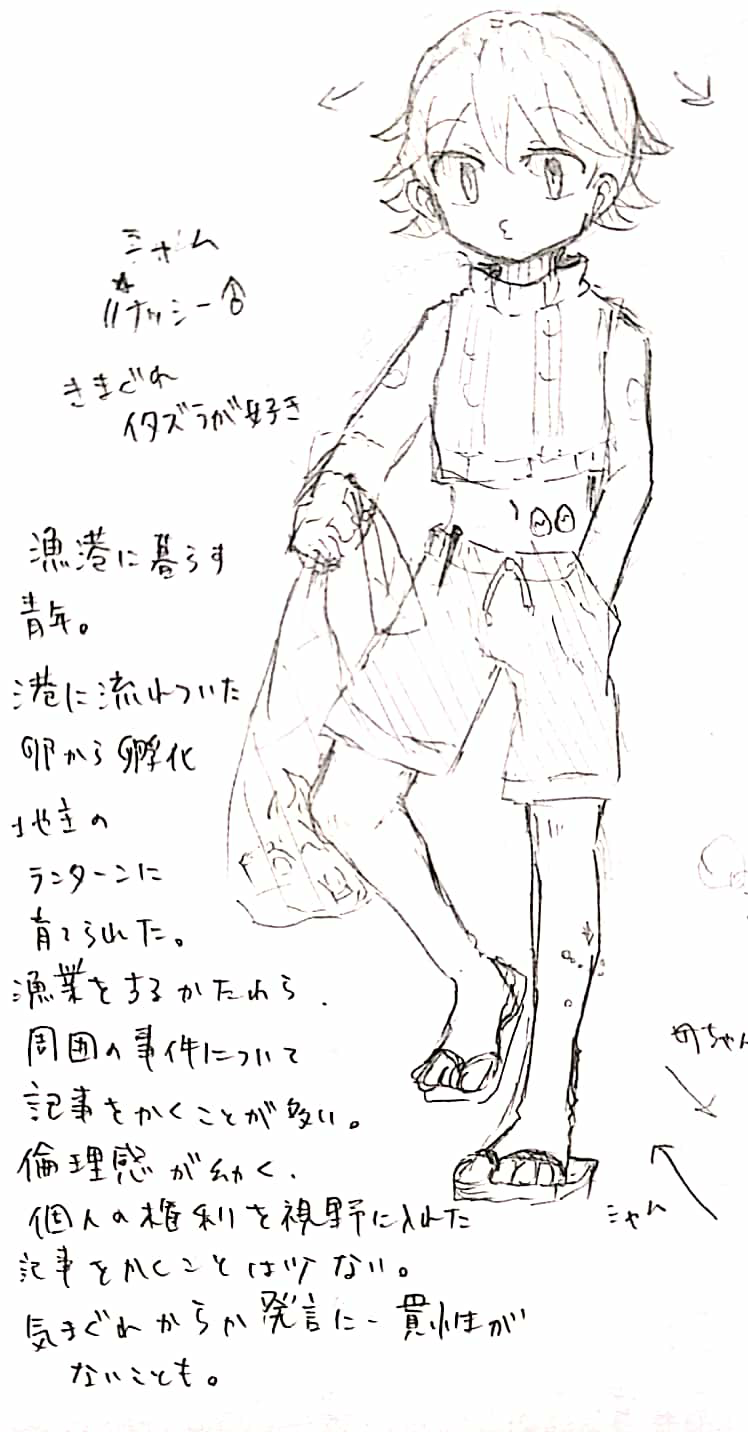 シャム
バナッシー♂
きまぐれ
イタズラが好き
漁港に暮らす
青年。
港に流れついた
卵から孵化
地主の
ランターンに
育てられた。
漁業をするかたわら、
周囲の事件について
記事をかくことが多い。
倫理感が幼く、
個人の権利を視野に入れた
記事をかくことは少ない。
気まぐれからか発言に一貫性が
ないことも。
母ちゃん
シャム